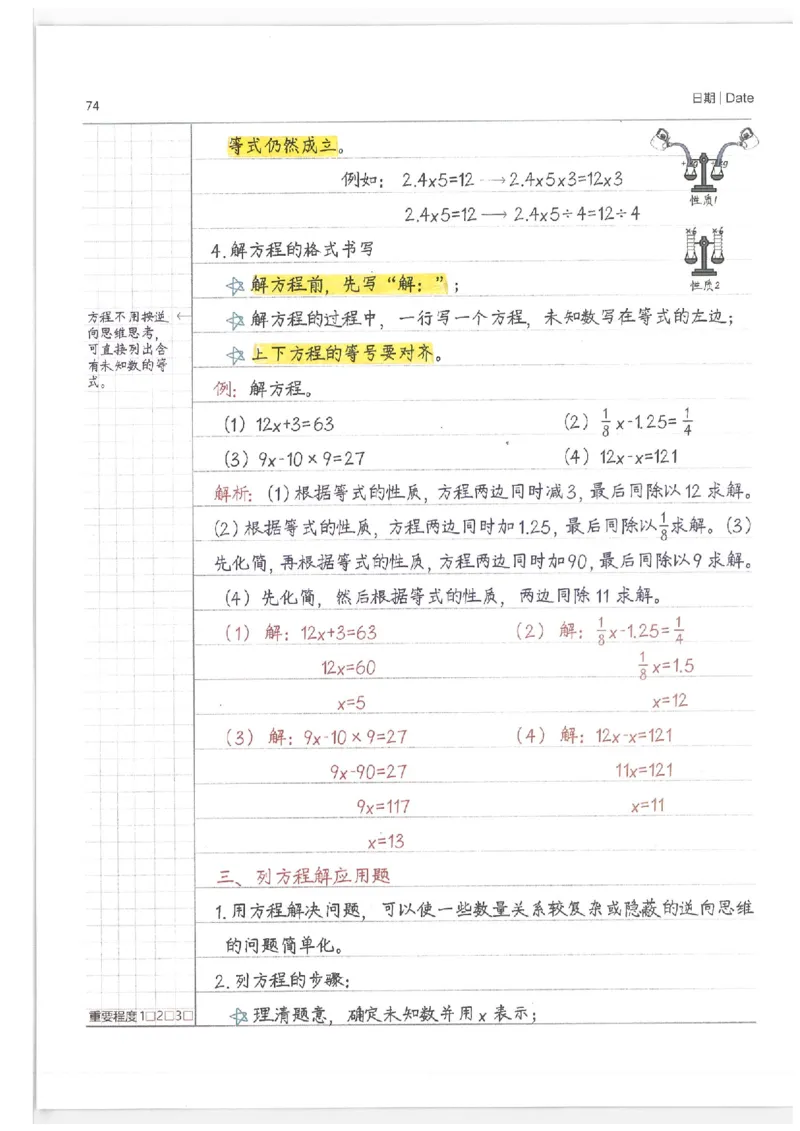 74
日期 | Date
等式仍然成立。
例如：2.4x5=12 → 2.4x5x3=12x3
2.4x5=12 → 2.4x5÷4=12÷4
性质1
4.解方程的格式书写
x6 x6
☆ 解方程前，先写“解：”；
性质2
方程不用按逆
向思维思考，
可直接列出含
有未知数的等
式。
☆ 解方程的过程中，一行写一个方程，未知数写在等式的左边；
☆ 上下方程的等号要对齐。
例：解方程。
(1) 12x+3=63 (2) 1/8 x-1.25= 1/4
(3) 9x-10×9=27 (4) 12x-x=121
解析：(1)根据等式的性质，方程两边同时减3，最后同除以12求解。
(2)根据等式的性质，方程两边同时加1.25，最后同除以1/8求解。(3)
先化简，再根据等式的性质，方程两边同时加90，最后同除以9求解。
(4) 先化简，然后根据等式的性质，两边同除11求解。
(1) 解：12x+3=63 (2) 解：1/8 x-1.25=1/4
12x=60 1/8 x=1.5
x=5 x=12
(3) 解：9x-10×9=27 (4) 解：12x-x=121
9x-90=27 11x=121
9x=117 x=11
x=13
三、列方程解应用题
1.用方程解决问题，可以使一些数量关系较复杂或隐蔽的逆向思维
的问题简单化。
2.列方程的步骤：
☆ 理清题意，确定未知数并用x表示；
重要程度1□2□3□